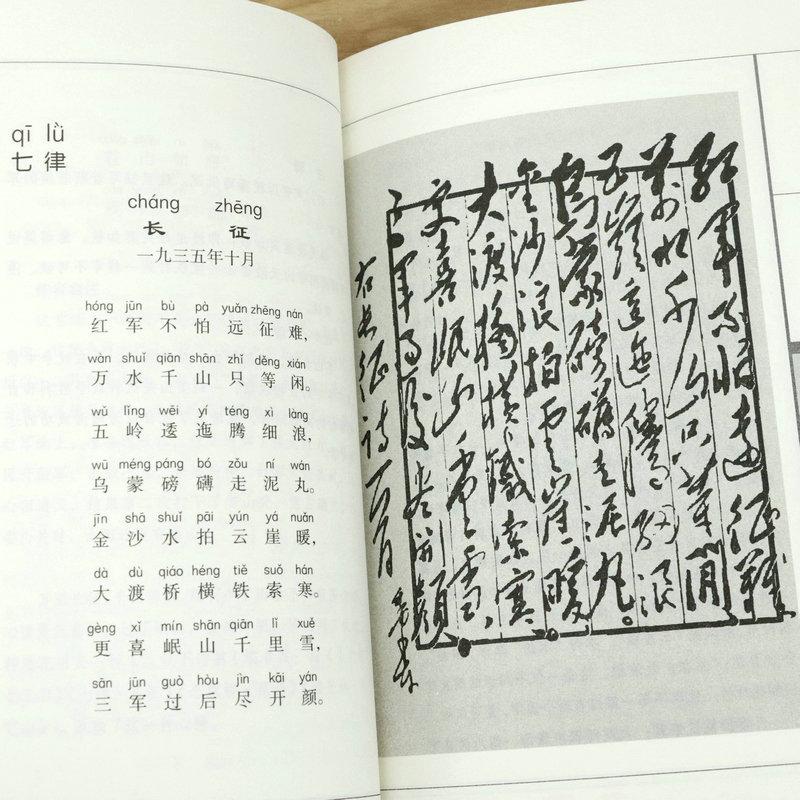 qī lǜ
七律
cháng zhēng
长征
一九三五年十月
hóng jūn bù pà yuǎn zhēng nán
红军不怕远征难，
wàn shuǐ qiān shān zhǐ děng xián
万水千山只等闲。
wǔ lǐng wēi yí téng xì làng
五岭逶迤腾细浪，
wū méng páng bó zǒu ní wán
乌蒙磅礴走泥丸。
jīn shā shuǐ pāi yún yá nuǎn
金沙水拍云崖暖，
dà dù qiáo héng tiě suǒ hán
大渡桥横铁索寒。
gèng xǐ mín shān qiān lǐ xuě
更喜岷山千里雪，
sān jūn guò hòu jìn kāi yán
三军过后尽开颜。
红军不怕远征难
万水千山只等闲
五岭逶迤腾细浪
乌蒙磅礴走泥丸。
金沙浪拍云崖暖
大渡桥横铁索寒
更喜岷山千里雪
三军过后尽开颜
右长征诗一首